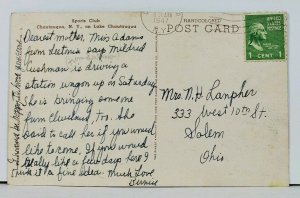 Sports Club
Chautauqua, N. Y., on Lake Chautauqua
Dearest mother, Miss Adams
from Leetonia says Mildred
Cushman is driving a
station wagon up on Saturday
She is bringing someone
from Cleveland, too. She
said to call her if you would
like to come. If you would
really like a few days here I
think it a fine idea. Much Love
HANDCOLORED
POST CARD
1947
1 CENT 1
Mrs. N. H. Lanpher
333 West 10th St.
Salem
Ohio